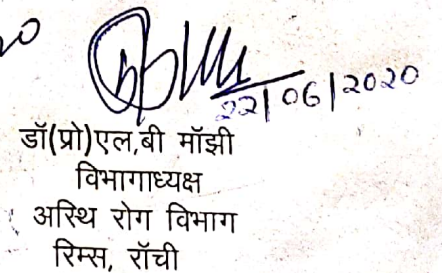 22/06/2020
डॉ(प्रो)एल,बी मॉझी
विभागाध्यक्ष
अस्थि रोग विभाग
रिम्स, रॉची